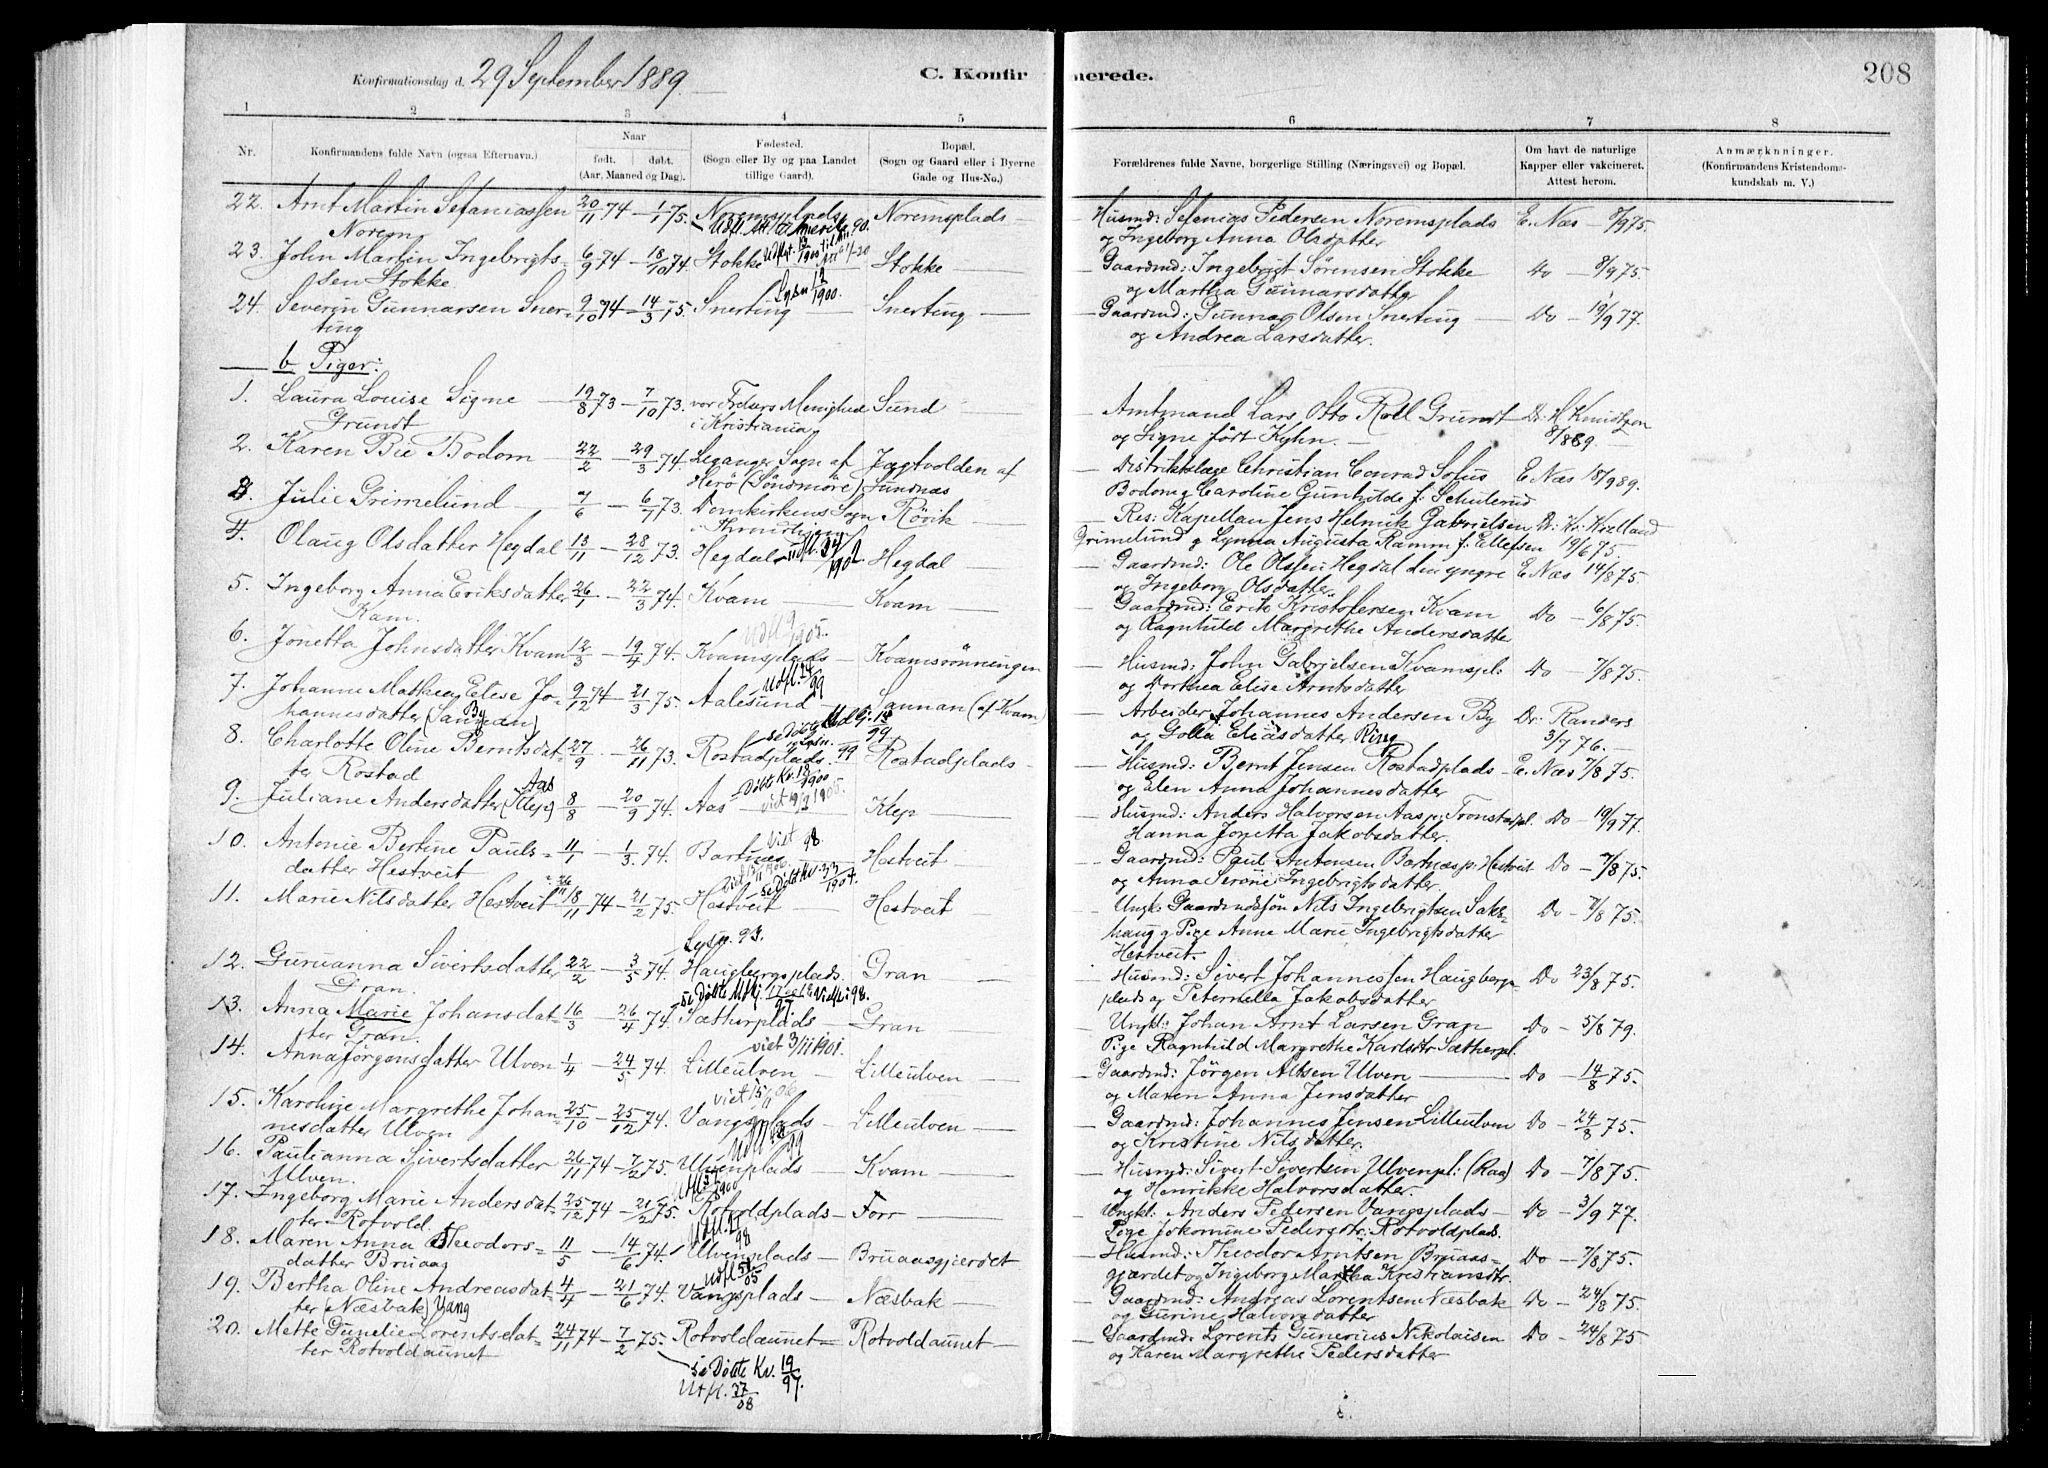 Konfirmationsdag d. 29 September 1889.
C. Konfirmerede.
208
1 2 3 4 5 6 7 8
Nr.
Konfirmandens fulde Navn (ogsaa Efternavn.)
Naar
født. døbt.
(Aar, Maaned og Dag).
Fødested.
(Sogn eller By og paa Landet
tillige Gaard).
Bopæl.
(Sogn og Gaard eller i Byerne
Gade og Hus-No.)
Forældrenes fulde Navne, borgerlige Stilling (Næringsvei) og Bopæl.
Om havt de naturlige
Kapper eller vakcineret.
Attest herom.
Anmærkninger.
(Konfirmandens Kristendoms-
kundskab m. V.)
22. Arnt Martin Sefaniassen 20/11 74 — 1/1 75. Noremsplads Noremsplads — Husmd: Sefanias Pedersen Noremsplads E. Næs — 8/9 75.
Norem og Ingeborg Anna Olsdatter
23. John Martin Ingebrigts- 6/9 74 — 18/10 74. Stokke Stokke — Gaardmd: Ingebrigt Sörensen Stokke Do — 8/9 75
sen Stokke og Martha Gunnarsdatter
Lysn 12/1900.
24. Severin Gunnarsen Sner- 9/10 74 — 14/3 75. Snerting — Snerting — Gaardmd: Gunnar Olsen Snerting — Do — 19/9 77.
ting og Andrea Larsdatter.
b Piger:
1. Laura Louise Signe 19/8 73 — 7/10 73. vor Frelsers Menighed Sund — Amtmand Lars Otto Roll Grundt Dr. H. Knudtzon
Grundt i Kristiania og Signe født Kyhn. — 8/8 89.
2. Karen Bie Bodom — 22/2 — 29/3 74. Leganger Sogn af Jægtvolden af — Distriktslæge Christian Conrad Sofus E Næs 18/9 89.
Herö (Söndmöre) Sundnæs Bodom g Caroline Gunhilde f. Schulerud
3. Julie Grimelund — 7/6 — 6/7 73. Domkirkens Sogn Rövik — Res: Kapellan Jens Helmik Gabrielsen Dr. Kr. Kielland
i Throndhjem Grimelund g Lynna Augusta Ramm f. Ellefsen 19/6 75.
4. Olaug Olsdatter Hegdal 13/11 — 28/12 73. Hegdal Hegdal — Gaardmd: Ole Olssen Hegdal den yngre E Næs 14/8 75
og Ingeborg Olsdatter
5. Ingeborg Anna Eriksdatter 26/1 — 22/3 74. Kvam — Kvam — Gaardmd: Erik Kristofersen Kvam Do — 6/8 75.
Kam. og Ragnhild Margrethe Andersdatter
6. Jonetta Johnsdatter Kvam 12/3 — 19/4 74. Kvamsplads — Kvamsrönningen — Husmd: John Gabrielsen Kvamspl: Do — 7/8 75.
og Dorthea Elise Arntsdatter
7. Johanne Mathea Elise Jo- 9/12 74 — 21/3 75. Aalesund — Sannan (af Kvam) — Arbeider Johannes Andersen By Dr. Randers
hannesdatter (Sannan) By og Golla Eliasdatter Ring 3/7 76. —
8. Charlotte Oline Berntsdat- 27/9 — 26/11 73. Rostadplads. Rostadplads — Husmd: Bernt Jensen Rostadplads — E. Næs 7/8 75.
ter Rostad og Elen Anna Johannesdatter
9. Juliane Andersdatter (Klep) Aas 8/8 — 20/9 74. Aas Klep — Husmd: Anders Halvorsen Aas p. Tronstadpl. Do — 19/9 77.
Hanna Jonetta Jakobsdatter.
10. Antonie Bertine Pauls- 11/1 — 1/3 74. Bartnæs Hestveit — Gaardmd: Paul Antonsen Bartnæs p: Hestveit Do — 7/8 75.
datter Hestveit og Anna Serene Ingebrigtsdatter.
11. Marie Nilsdatter Hestveit 18/11 74 — 21/2 75. Hestveit Hestveit — Ungk: Gaardmdssön Nils Ingebrigtsen Saks- Do — 7/8 75.
haug g Pige Anne Marie Ingebrigtsdatter
Hestveit.
Lysn. 93.
12. Guruanna Sivertsdatter 22/2 — 3/5 74. Haugbergsplads. Gran — Husmd: Sivert Johannessen Haugbergs Do — 23/8 75.
Gran. plads og Peternella Jakobsdatter
13. Anna Marie Johansdat- 16/3 — 26/4 74. Sætherplads — Gran — Ungkl: Johan Arnt Larsen Gran Do — 5/8 79.
ter Gran. Pige Ragnhild Margrethe Karlsdtr Sætherpl.
viet 3/11 1901.
14. Anna Jörgensdatter Ulven 1/4 — 24/5 74. Lilleulven — Lilleulven — Gaardmd: Jörgen Altsen Ulven — Do — 14/8 75.
og Maren Anna Jensdatter
viet 15/11 06
15. Karoline Margrethe Johan- 25/10 — 25/12 74. Vangsplads — Lilleulven — Gaardmd: Johannes Jensen Lilleulven Do — 24/8 75.
nesdatter Ulven og Kristine Nilsdatter.
16. Paulianna Sivertsdatter 26/11 74 — 7/2 75. Ulvenplads — Kvam — Husmd: Sivert Sivertsen Ulvenpl: (Raa) Do — 7/8 75.
Ulven. og Henrikke Halvorsdatter.
17. Ingeborg Marie Andersdat- 25/12 74 — 21/2 75. Rotvoldplads — Forr — Ungkl. Anders Pedersen Vangsplads — Do — 3/9 77.
ter Rotvold. Pige Jokomine Pedersdtr: Rotvoldplads.
18. Maren Anna Theodors- 11/5 — 14/6 74. Ulvenplads — Bruaasgjerdet — Husmd: Theodor Arntsen Bruaas- Do — 7/8 75.
datter Bruaas gjærdet og Ingeborg Martha Kristiansdtr.
19. Bertha Oline Andreasdat- 4/4 — 21/6 74. Vangsplads — Næsbak — Gaardmd: Andreas Lorentsen Næsbak Do — 24/8 75.
ter (Næsbak) Vang og Gurine Halvorsdatter
20. Mette Gunelie Lorentsdat- 24/11 74 — 7/2 75. Rotvoldaunet — Rotvoldaunet — Gaardmd: Lorents Gunerius Nikolaisen Do — 24/8 75
ter Rotvoldaunet og Karen Margrethe Pedersdatter
se Döbte Kv. 19/97.
Utfl. 37/08